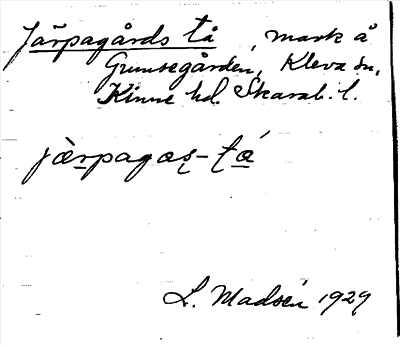 Järpagårds tå, mark å
Grumsegården, Kleva sn,
Kinne hd. Skarab. l.
jä̀rpagaṣ-tá̱
L. Madsén 1929